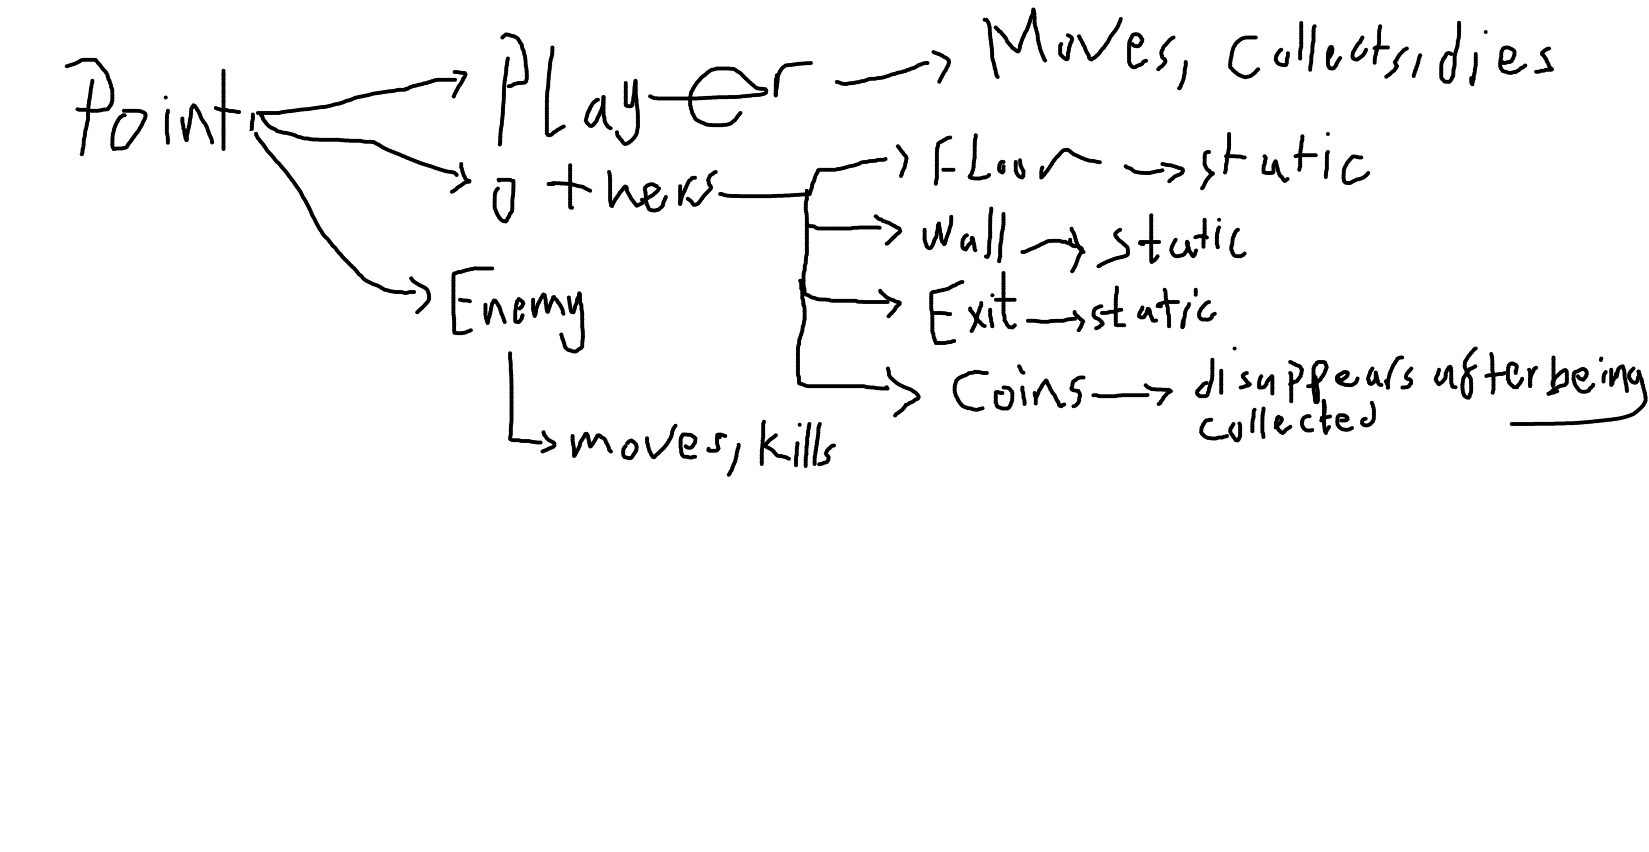 Point
Player
Moves, collects, dies
others
Floor
static
Wall
static
Enemy
Exit
static
Coins
disappears after being
collected
moves, kills